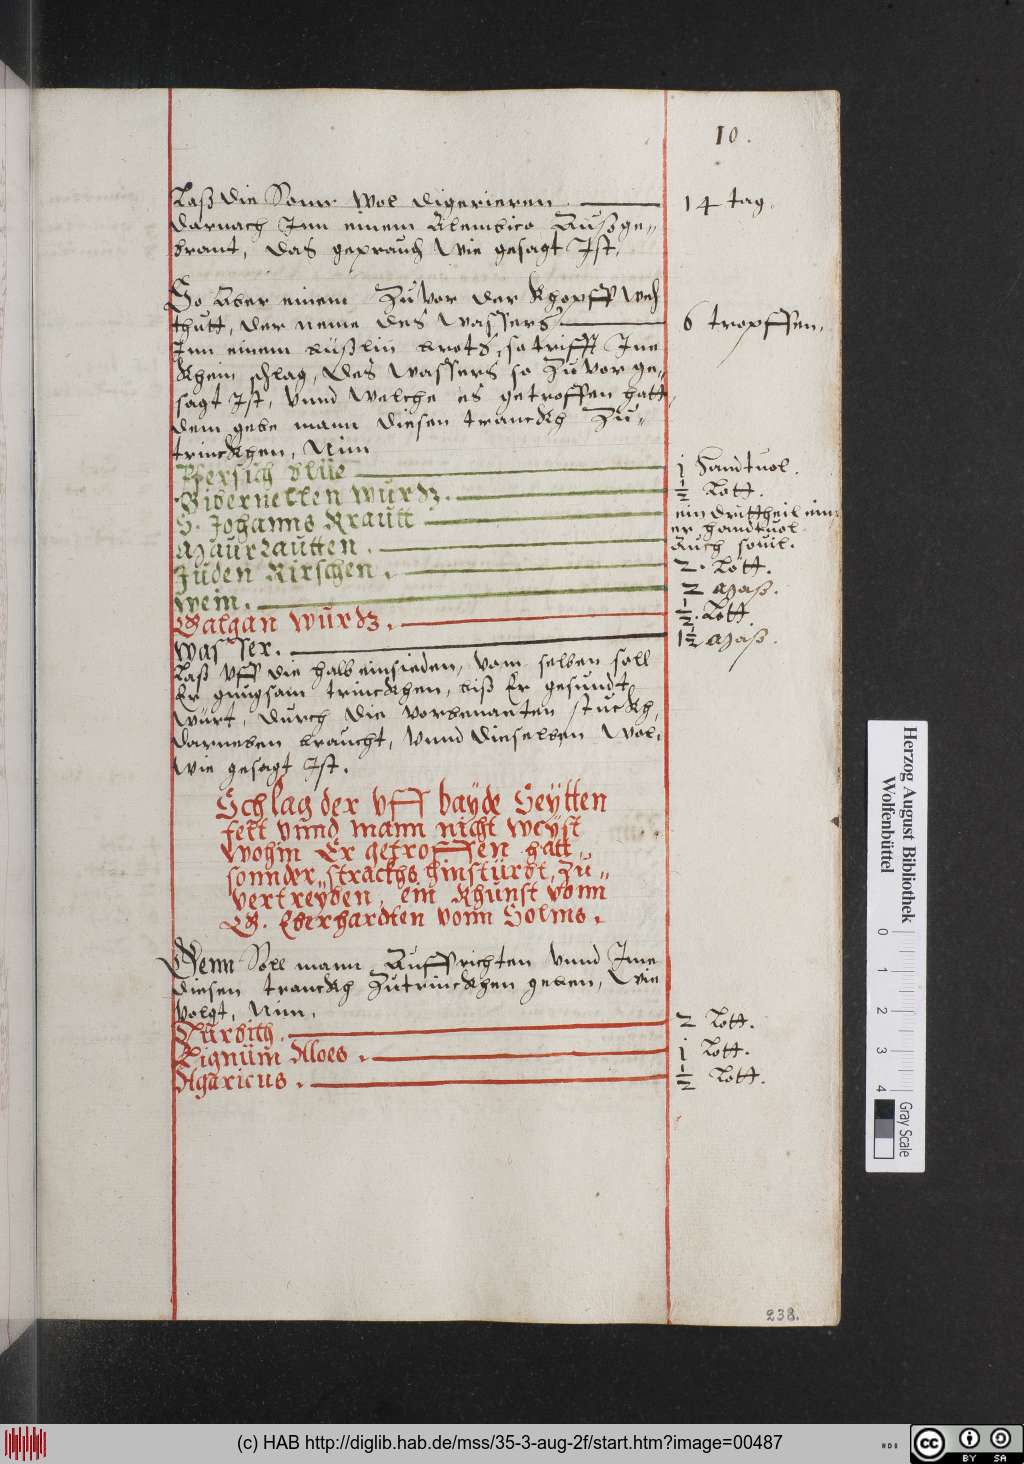 10.
Laß die Sonn wol digerieren. 14 tag.
Darnach Inn einem Alembico Außge„
brant, das geprauch wie gesagt Ist.
So Aber einem Zuvor der Khopff weh
thutt, der neme des wassers 6 tropffen,
Inn einem bißlin brots, so trifft Ine
Khein schlag, des wassers so Zuvor ge„
sagt Ist, Vnnd welche es getroffen hatt,
dem gebe mann diesen tranckh Zu„
trinckhen, Nim
Persich blüe 1 handtvol.
Bibernellen wurdz. ½ Lott.
S. Johanns Krautt ein drittheil ein
er handtvol.
Maurrautten. Auch sovil.
Juden Kirschen. 2. Lott.
Wein. 2 Maß.
Galgan wurdz. ½. Lott.
Wasser. 1½ Maß.
Laß vff die halb einsieden, vom selben soll
Er gnugsam trinckhen, biß Er gesundt
würt, durch die vorbenanten stuckh,
darneben braucht, Vnnd dieselben wol,
wie gesagt Ist.
Schlag der vff bayde Seytten
felt vnnd mann nicht weyst
wohin Er getroffen hatt
sonnder strackhs hinstürbt, Zu„
vertreyben, ein Khunst vonn
G. Eberhardten vonn Solms.
Denn Soll mann Auffrichten Vnnd Ime
diesen tranckh Zutrinckhen geben, wie
volgt, Nim.
Turbith. 2 Lott.
Lignum Aloes. 1 Lott.
Agaricus. ½ Lott.
238.
Herzog August Bibliothek
Wolfenbüttel
0 1 2 3 4
Gray Scale
(c) HAB http://diglib.hab.de/mss/35-3-aug-2f/start.htm?image=00487
cc BY SA